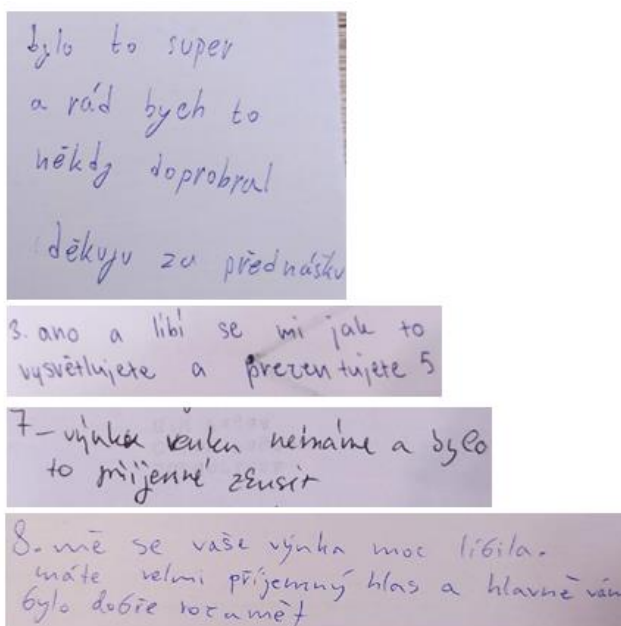 bylo to super
a rád bych to
někdy doprobral
děkuju za přednášku
3. ano a líbí se mi jak to
vysvětlujete a prezentujete 5
7 - výuku venku nemáme a bylo
to příjemné zkusit
8. mě se vaše výuka moc líbila.
máte velmi příjemný hlas a hlavně vám
bylo dobře rozumět